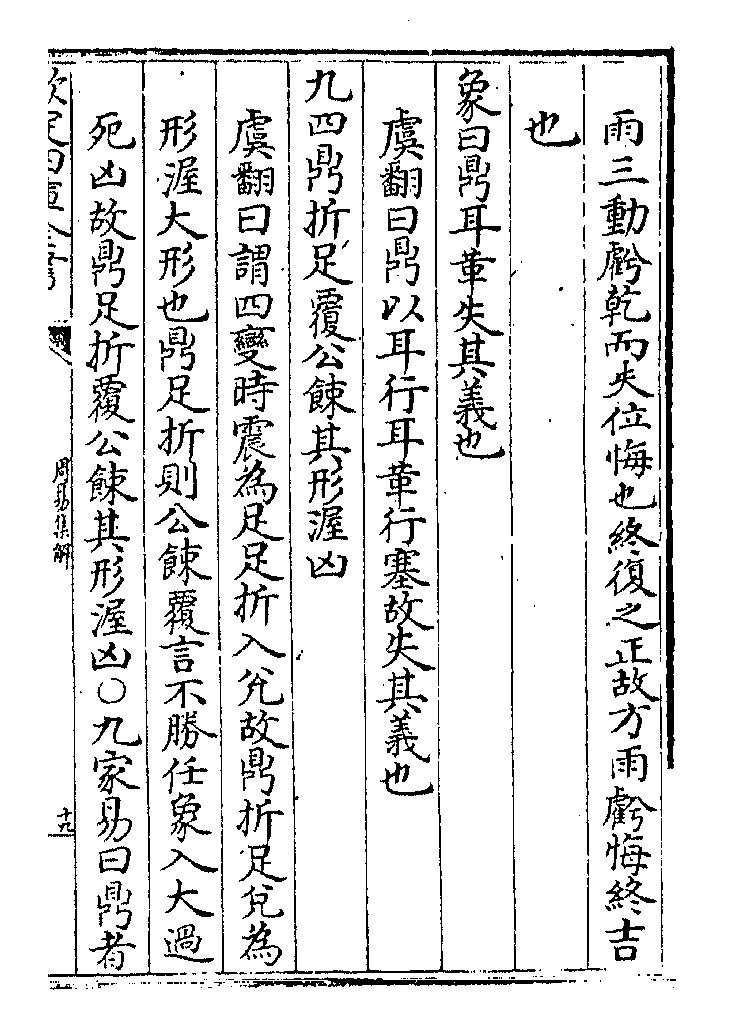 雨三動虧乾而失位悔也終復之正故方雨虧悔終吉
也
象曰鼎耳革失其義也
虞翻曰鼎以耳行耳革行塞故失其義也
九四鼎折足覆公餗其形渥凶
虞翻曰謂四變時震為足足折入兊故鼎折足兊為
形渥大形也鼎足折則公餗覆言不勝任象入大過
死凶故鼎足折覆公餗其形渥凶○九家易曰鼎者
欽定四庫全書
周易集解
十九